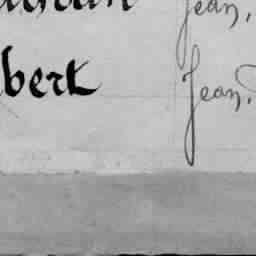 Jean,
bert Jean,